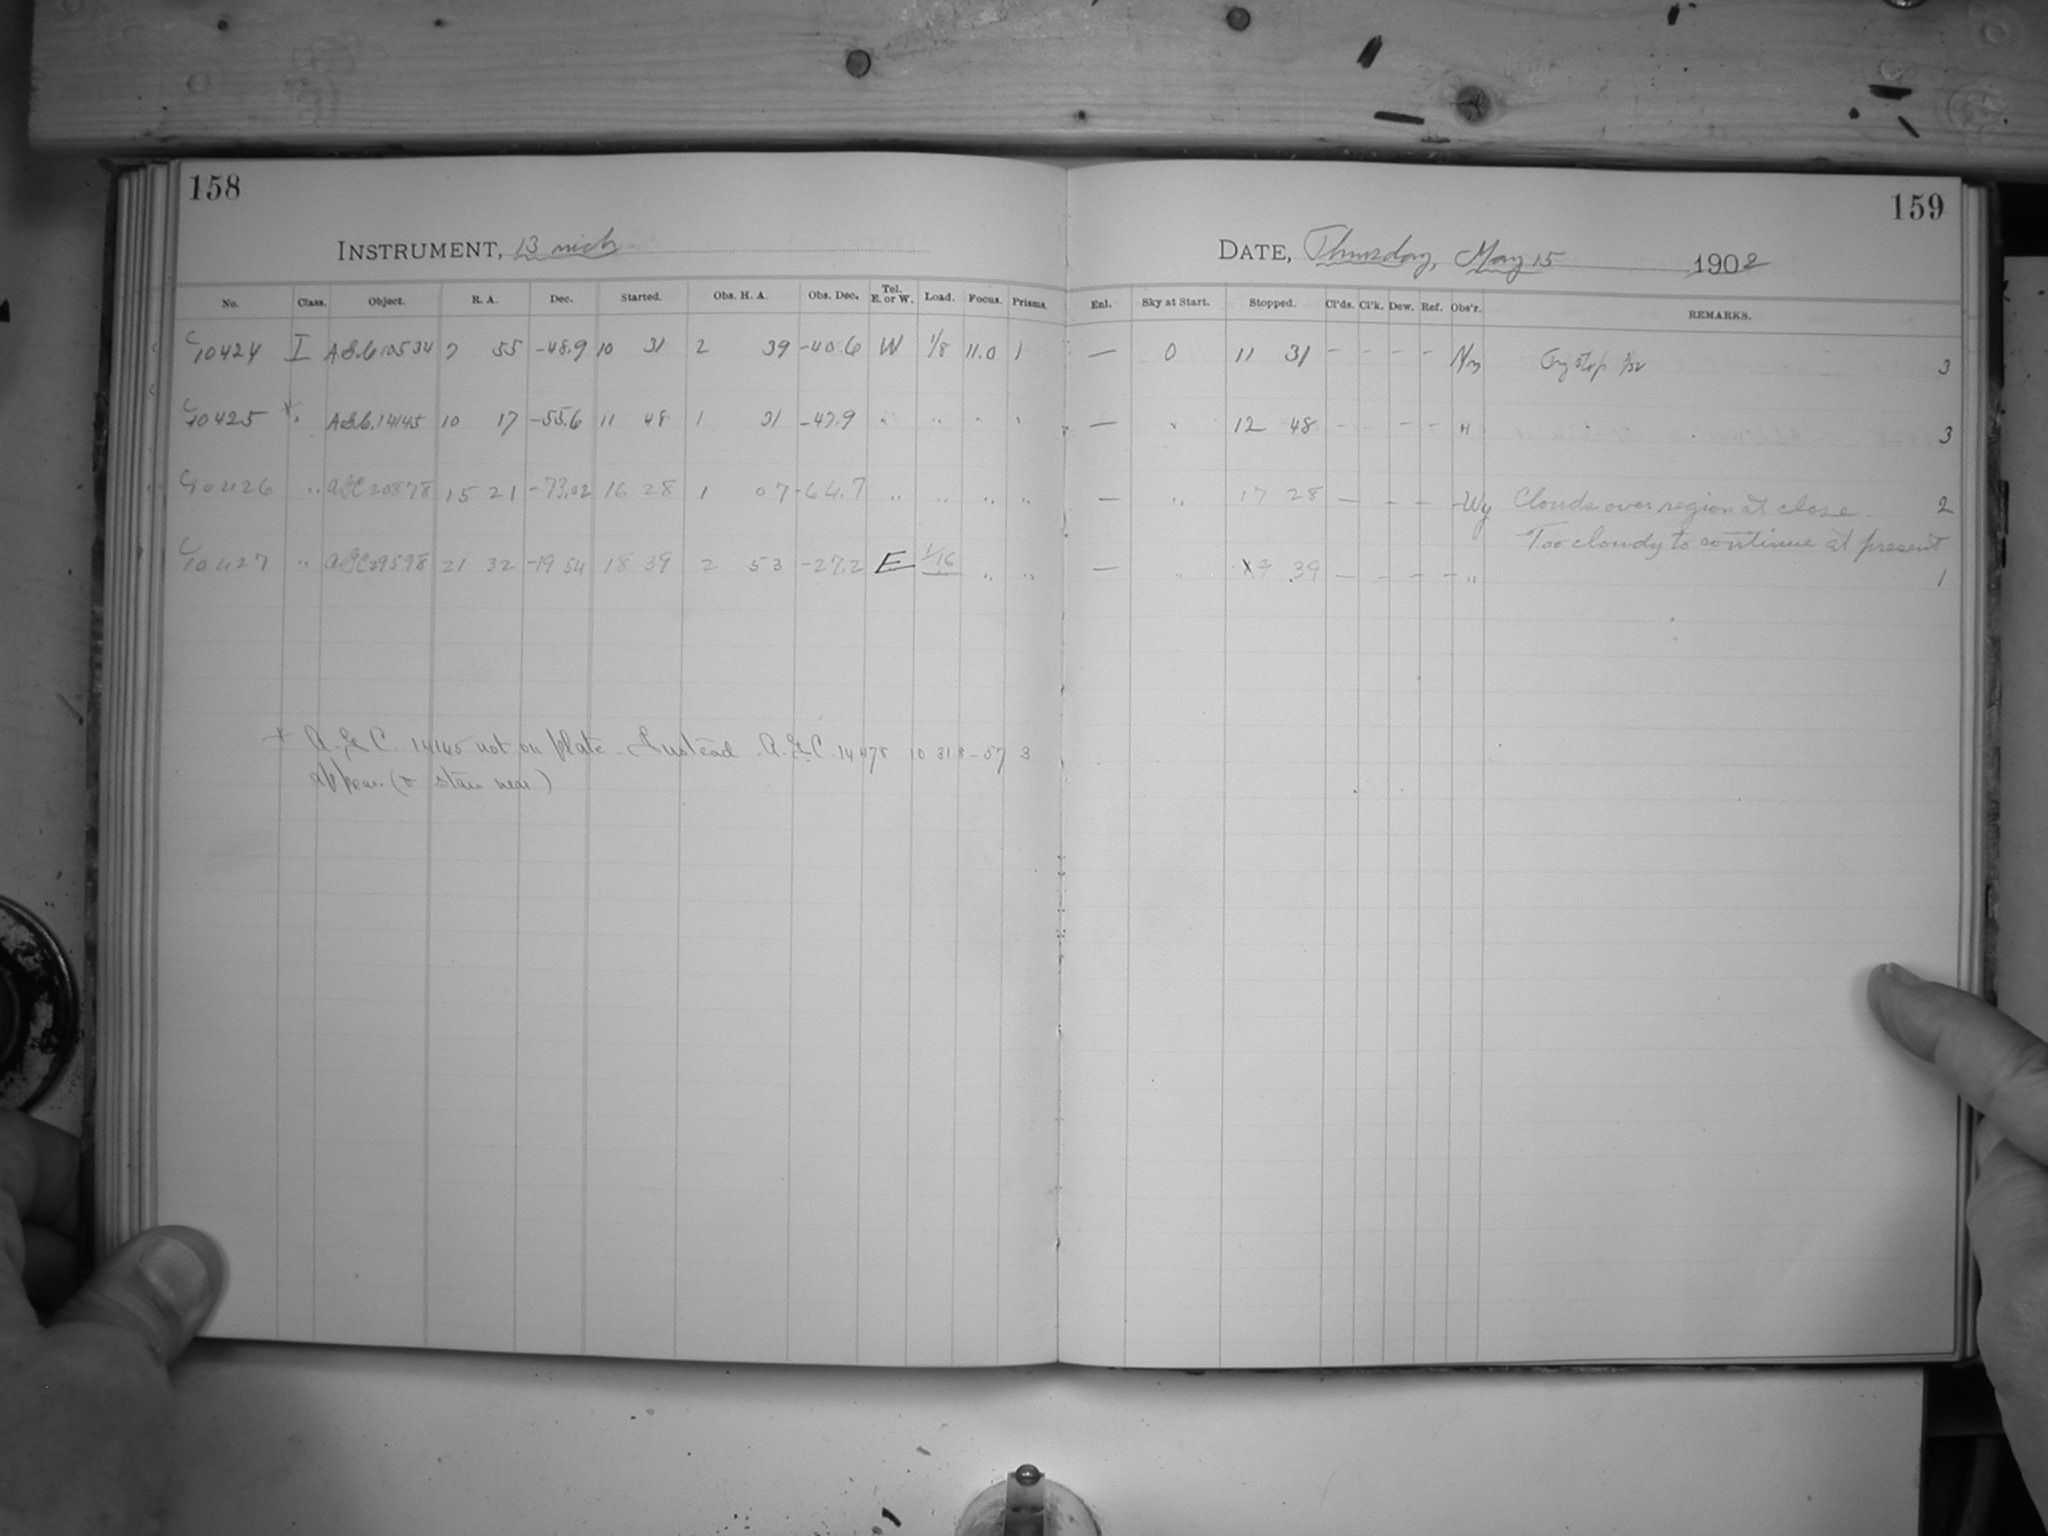 158
159
INSTRUMENT, 13 inch
DATE, Thursday, May 15 1902
No. Class. Object. R. A. Dec. Started. Obs. H. A. Obs. Dec. Tel. E. or W. Load. Focus. Prisms.
Enl. Sky at Start. Stopped. Cl'ds. Cl'k. Dew. Ref. Obs'r. REMARKS.
C 10424 I AGC 10534 7 55 -48.9 10 31 2 39 -40.6 W 1/8 11.0 1 — 0 11 31 - - - - 3
C 10425 * " AGC. 14145 10 17 -55.6 11 48 1 31 -47.9 " " " " — " 12 48 - - - - " 3
C 10426 " AGC 20878 15 21 -73.02 16 28 1 07 -64.7 " " " " — " 17 28 — - - - Wy Clouds over region at close. 2
Too cloudy to continue at present
C 10427 " AGC 29598 21 32 -19 54 18 39 2 53 -27.2 E 1/16 " " — " 39 — - - - " 1
* A.G.C. 14145 not on plate. Instead A.G.C. 14478 10 31.8 -57 3
appear. stars near)